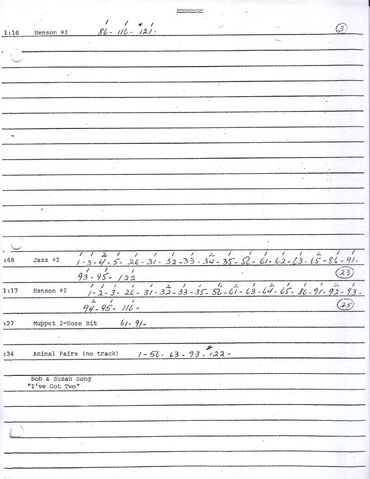 1:16 Henson #1 86- 116- 121- 3
:48 Jazz #2 1-3-4-5- 26-31-32-33-34-35-56-61-62-63-65-86-91-
93-95- 122 23
1:17 Henson #2 1-2-3-26-31-32-33-35-56-61-63-64-65-86-91-92-93-
94-95-116- 25
:27 Muppet 2-Nose Bit 61-91-
:34 Animal Pairs (no track) 1-56-63-93-122-
Bob & Susan Song
"I've Got Two"